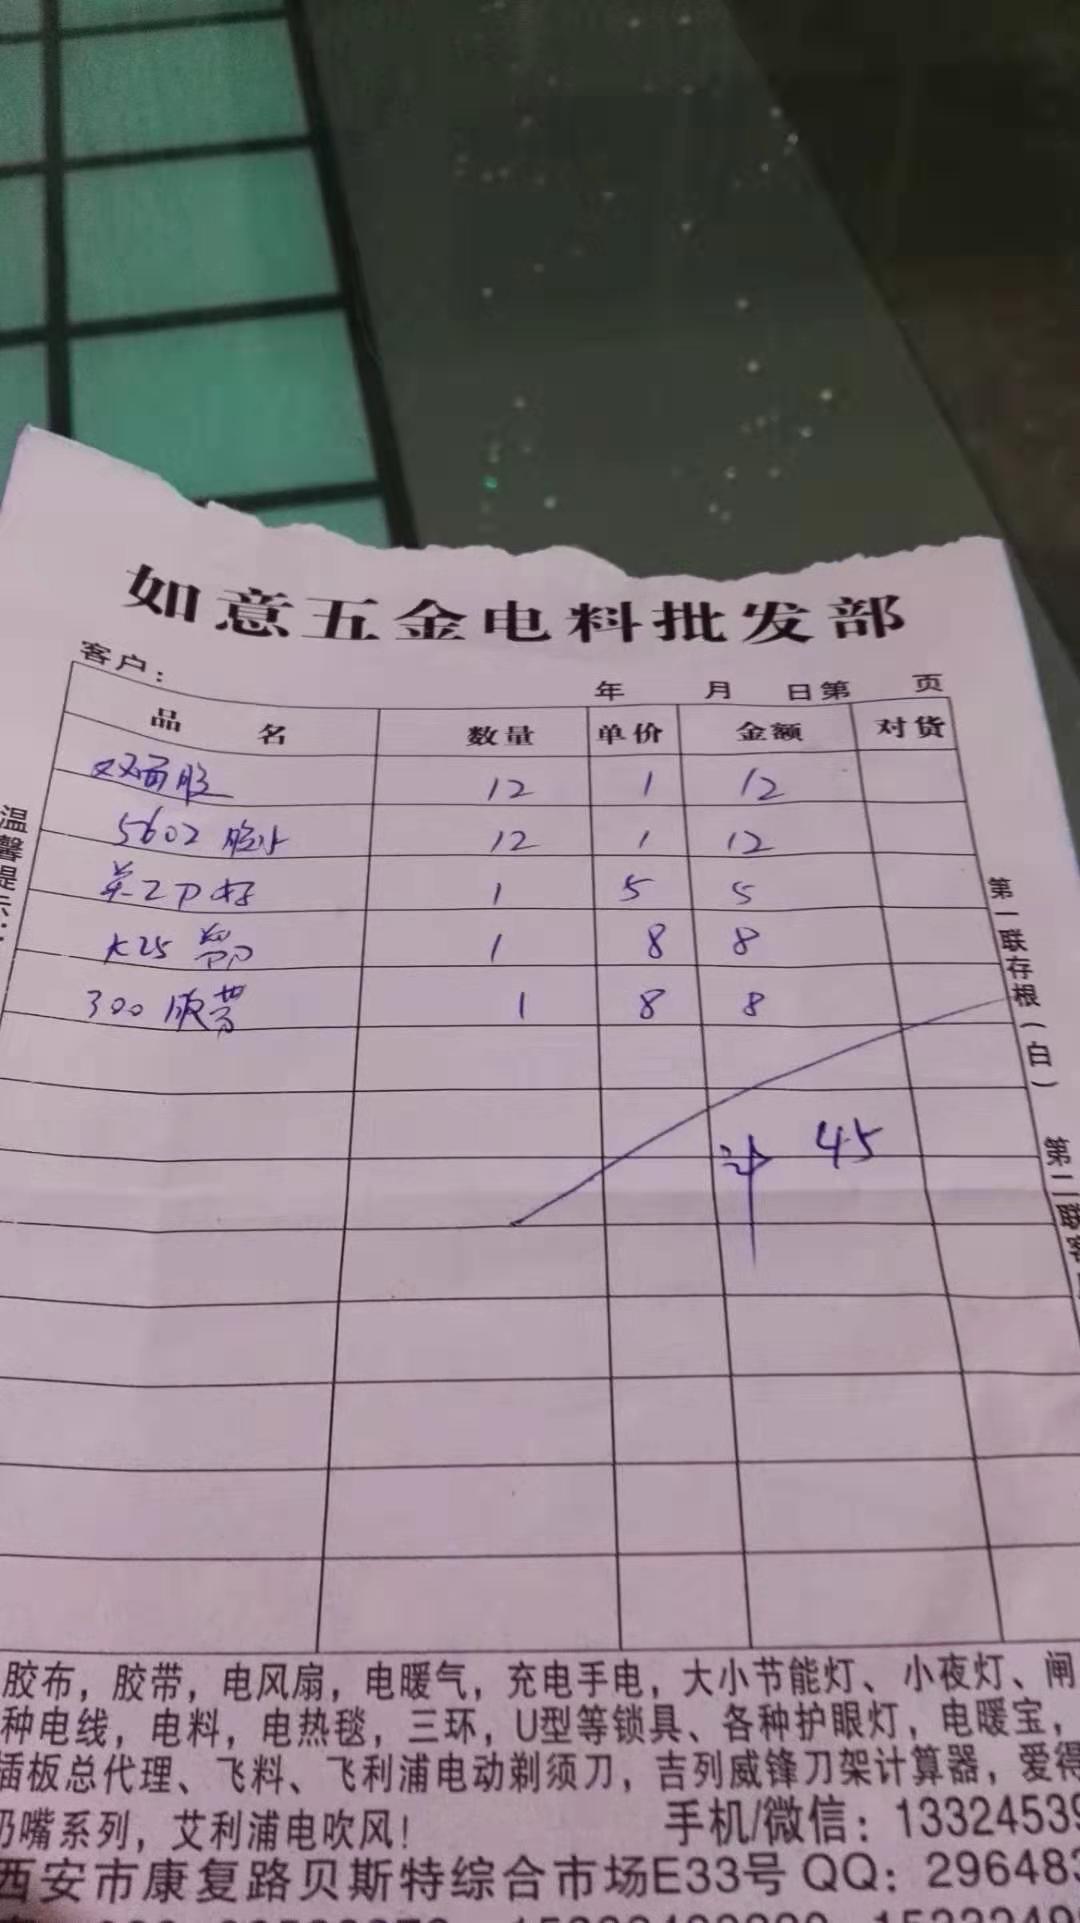 如意五金电料批发部
客户： 年 月 日第 页
品名 数量 单价 金额 对货
双面胶 12 1 12
5602 胶水 12 1 12
1 5 5
K25 1 8 8
300 胶带 1 8 8
计 45
温馨提示：
第一联存根（白）
第二联客
胶布，胶带，电风扇，电暖气，充电手电，大小节能灯、小夜灯、闸
种电线，电料，电热毯，三环，U型等锁具、各种护眼灯，电暖宝，
插板总代理、飞科、飞利浦电动剃须刀，吉列威锋刀架计算器，爱得
奶嘴系列，艾利浦电吹风！ 手机/微信：13324539
西安市康复路贝斯特综合市场E33号 QQ：296483